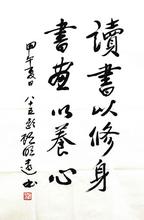 讀書以修身
書畫以養心
甲午夏日
八十五歲
書